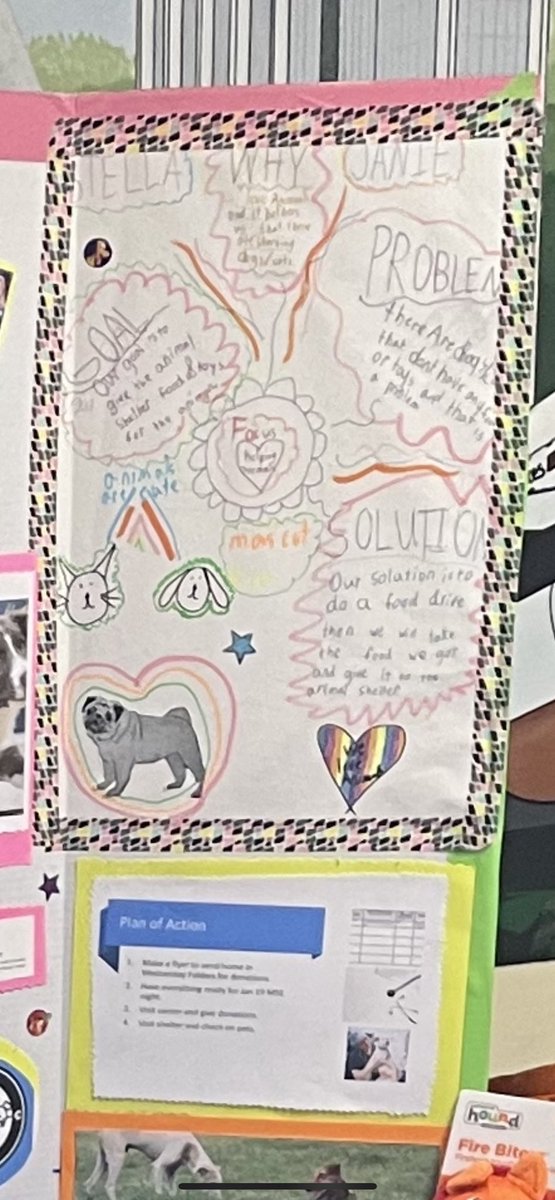 TELLA
WHY
JANIE
love Animals
and it bothers
PROBLEM
there Are dogs
that dont have any
or toys and that is
a problem
GOAL
Our goal is to
give the animal
shelter food & toys
for the
Focus
animals
are cute
mascot
SOLUTION
Our solution is to
do a food drive
then we will take
the food we got
and give it to the
animal shelter
Plan of Action
1. Make a flyer to send home in
Wednesday Folders for donations.
2. Have everything ready for Jan 19
night.
3. Visit center and give donations.
4. Visit shelter and check on pets.
hound
Fire Bite